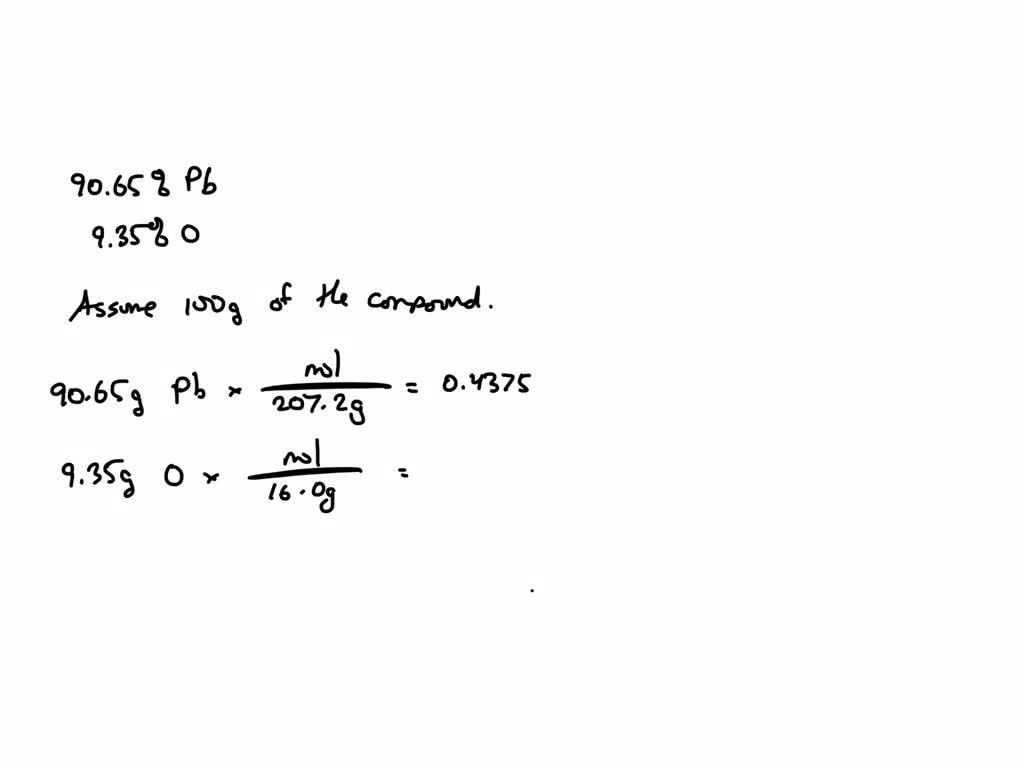 90.65% Pb
9.35% O
Assume 100g of the compound.
90.65g Pb × mol / 207.2g = 0.4375
9.35g O × mol / 16.0g =